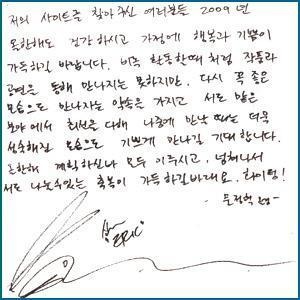 저의 사이트를 찾아주신 여러분들 2009년
한해도 건강하시고 가정에 행복과 기쁨이
가득하길 바랍니다. 비록 활동할때처럼 작품과
공연을 통해 만나지는 못하지만, 다시 꼭 좋은
모습으로 만나자는 약속을 가지고 서로 맡은
분야에서 최선을 다해 나중에 만날때는 더욱
성숙해진 모습으로 기쁘게 만나길 기대합니다.
올한해 계획하신바 모두 이루시고, 넘쳐나서
서로 나눌수있는 축복이 가득하길바래요. 화이팅!
- 문정혁
ERIC